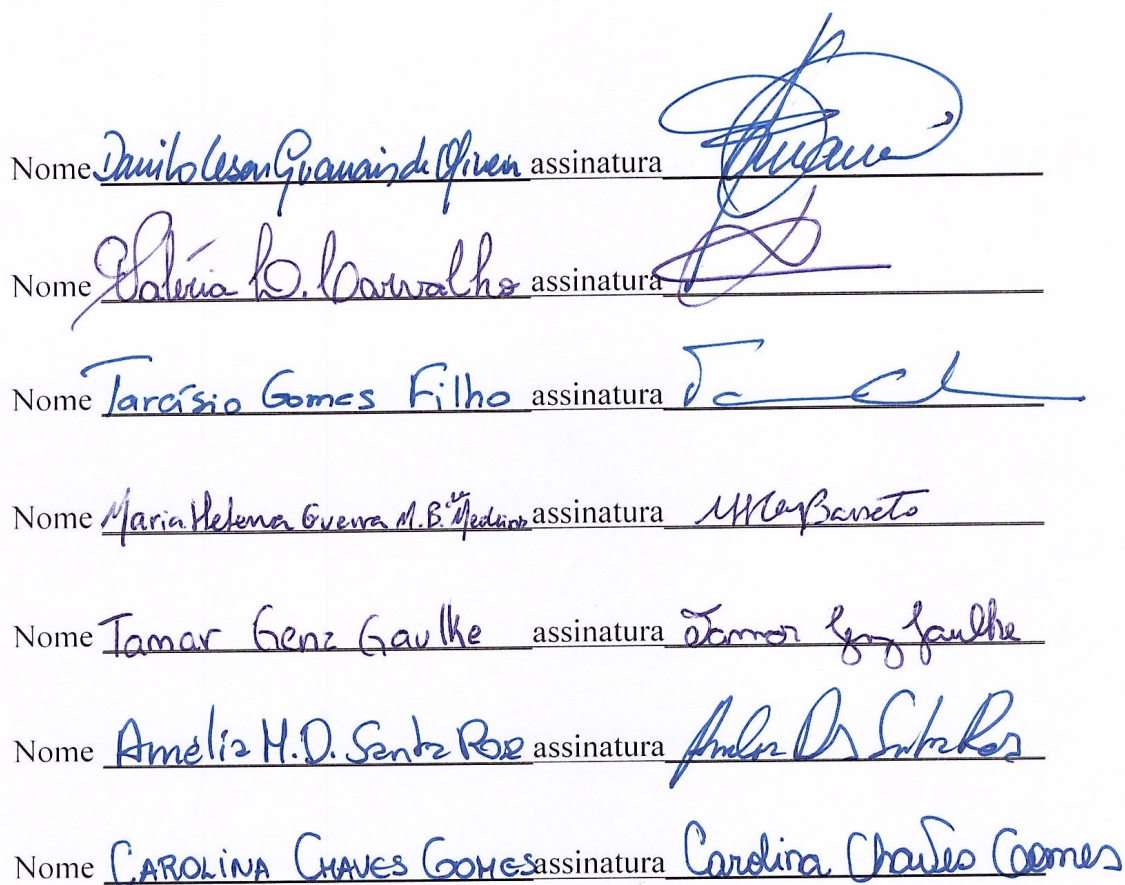 Nome Danilo Cesar Guanais de Oliveira assinatura
Nome Valéria L. Carvalho assinatura
Nome Tarcísio Gomes Filho assinatura
Nome Maria Helena Guerra M. B. Medeiros assinatura MHelBarreto
Nome Tamar Genz Gaulke assinatura Tamar Genz Gaulke
Nome Amélia M.D. Santa Rosa assinatura
Nome CAROLINA CHAVES GOMES assinatura Carolina Chaves Gomes